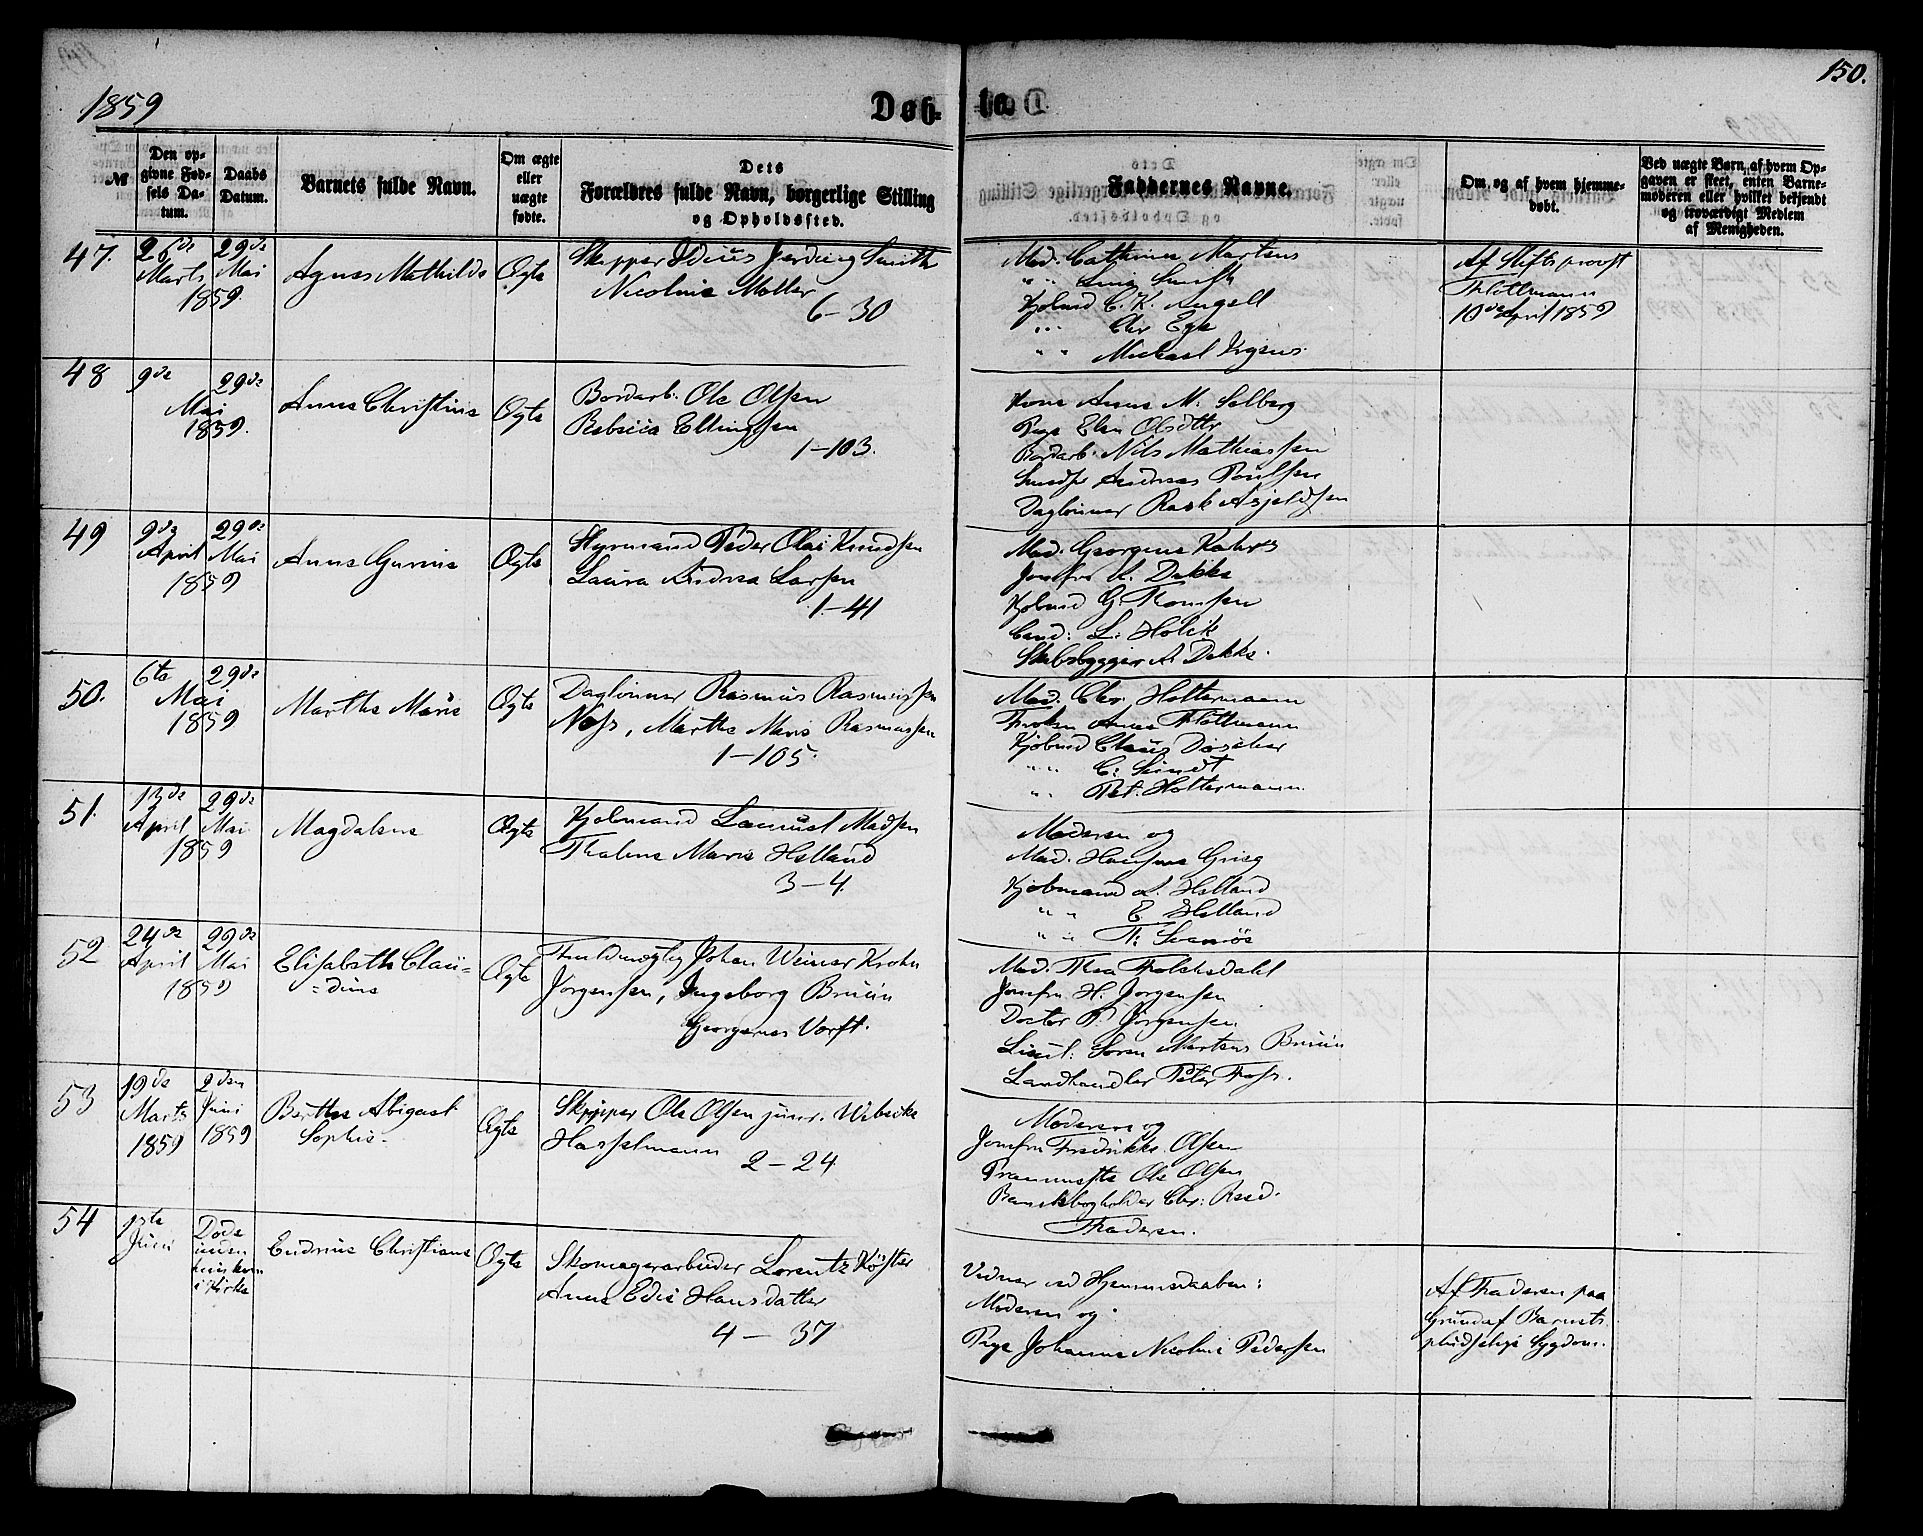 1859
Døb-
te.
150.
№
Den op-
givne Fød-
sels Da-
tum.
Daabs
Datum.
Barnets fulde Navn.
Om ægte
eller
uægte
fødte.
Dets
Forældres fulde Navn, borgerlige Stilling
og Opholdssted.
Faddernes Navne.
Om, og af hvem hjemme-
døbt.
Ved uægte Børn, af hvem Op-
gaven er skeet, enten Barne-
moderen eller hvilket bekjendt
og troværdigt Medlem
af Menigheden.
47.
26de
Marts
29de
Mai
1859.
Agnes Mathilde
Ægte
Skipper Smith
Nicoline Møller
6-30
Mad. Cathrine Martens
" " Smith
Kjøbmd C. K. Angell
" " Chr Ege
" " Michael Irgens
Af Stiftsprovst
Flottmann
10de April 1859
48
9de
29de
Mai
1859.
Anne Christine
Ægte
Bordarb. Ole Olsen
Rebecca Ellingsen
1-103.
Kone Anne M. Solberg
Pige Elen Olsdtr
Bordarb. Nils Mathiassen
Andreas Poulsen
Daglønner Rask
49
9de
April
29de
Mai
1859
Anne Gurine
Ægte
Styrmand Peder Olai Knudsen
Laura Andrea Larsen
1-41
Mad. Georgine Kahrs
Jomfru A. Dekke
Kjøbmd G. Thomsen
Cand: L: Holck
Skibsbygger A. Dekke.
50.
6te
29de
Mai
1859
Marthe Marie
Ægte
Daglønner Rasmus Rasmussen
Næss, Marthe Marie Rasmussen
1-105.
Mad. Chr. Holtermann
Frøken Anna Flottmann
Kjøbmd Claus
" " C: Sundt
" " Pet. Holtermann.
51.
13de
April
29de
Mai
1859
Magdalene
Ægte
Kjøbmand Madsen
Thalene Marie Helland
3-4.
Moderen og
Mad. Hansine Grieg
Kjøbmand A. Helland
" " E Helland
" " T: Svanøe
52
24de
April
29de
Mai
1859
Elisabeth Clau-
=dine
Ægte
Fuldmægtig Johan Weiner Krohn
Jørgensen, Ingeborg Bruun
Georgernes Vorft.
Mad. Thea Folkedahl
Jomfru H. Jørgensen
Doctor P. Jørgensen
Lieut: Søren Martens Bruun
Landhandler Peter Foss.
53
19de
Marts
1859
2den
Juni
1859
Berthe Abigael
Sophie
Ægte
Skipper Ole Olsen junr. Wibeke
Hasselmann
2-24
Moderen og
Jomfru Fredrikke Olsen
Ole Olsen
Bankbogholder Chr:
Faderen.
54
1ste
Juni
Døde
inden
kom
i Kirke
Endrine Christiane
Ægte
Skomagerarbeider Lorentz Køster
Anne Edie Hansdatter
4-37
Vidner ved Hjemmedaaben:
Moderen og
Pige Johanne Nicoline Pedersen
Af Faderen paa
Grund af Barnets
pludselige Sygdom.